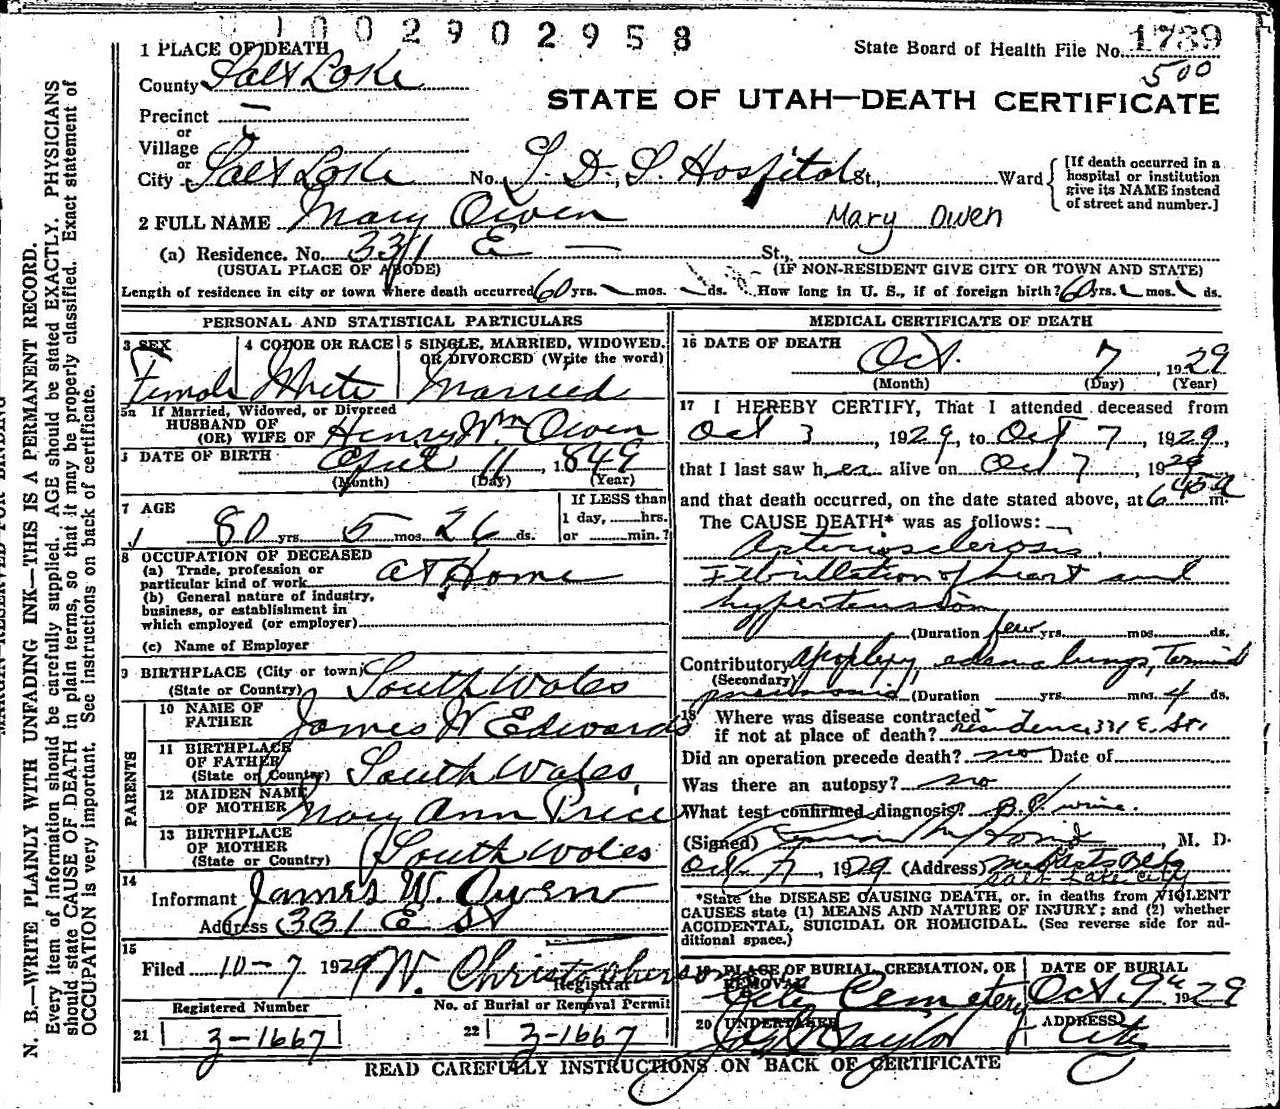 1002902958
State Board of Health File No. 1739
500
1 PLACE OF DEATH
County Salt Lake
STATE OF UTAH—DEATH CERTIFICATE
Precinct —
or
Village
or
City Salt Lake No. L. D. S. Hospital St., Ward
[If death occurred in a
hospital or institution
give its NAME instead
of street and number.]
2 FULL NAME Mary Owen Mary Owen
(a) Residence. No. 331 E — St.,
(USUAL PLACE OF ABODE) (IF NON-RESIDENT GIVE CITY OR TOWN AND STATE)
Length of residence in city or town where death occurred 60 yrs. mos. ds. How long in U. S., if of foreign birth? 60 yrs. mos. ds.
PERSONAL AND STATISTICAL PARTICULARS
3 SEX 4 COLOR OR RACE 5 SINGLE, MARRIED, WIDOWED.
OR DIVORCED (Write the word)
Female White Married
5a If Married, Widowed, or Divorced
HUSBAND OF
(OR) WIFE OF Henry Wm Owen
DATE OF BIRTH April 11, 1849
(Month) (Day) (Year)
7 AGE
80 yrs 5 mos. 26 ds.
If LESS than
1 day, hrs.
or min.?
8 OCCUPATION OF DECEASED
(a) Trade, profession or
particular kind of work At Home
(b) General nature of industry,
business, or establishment in
which employed (or employer)
(c) Name of Employer
9 BIRTHPLACE (City or town)
(State or Country) South Wales
PARENTS
10 NAME OF
FATHER James W Edwards
11 BIRTHPLACE
OF FATHER
(State or Country) South Wales
12 MAIDEN NAME
OF MOTHER Mary Ann Price
13 BIRTHPLACE
OF MOTHER
(State or Country) South Wales
14
Informant James W. Owen
Address 331 E St
15
Filed 10-7 1929 W. Christopherson
Registrar
Registered Number No. of Burial or Removal Permit
21 3-1667 22 3-1667
MEDICAL CERTIFICATE OF DEATH
16 DATE OF DEATH
Oct. 7, 1929
(Month) (Day) (Year)
17 I HEREBY CERTIFY, That I attended deceased from
Oct 3, 1929, to Oct 7, 1929,
that I last saw her alive on Oct 7 1929
and that death occurred, on the date stated above, at 6 45 a m.
The CAUSE DEATH* was as follows:
Arteriosclerosis
Fibrillation of heart and
hypertension
(Duration few yrs. mos. ds.
Contributory Apoplexy, edema lungs, Terminal
(Secondary)
pneumonia (Duration yrs. mos. 4 ds.
18 Where was disease contracted
if not at place of death? residence 331 E. St.
Did an operation precede death? no Date of
Was there an autopsy? no
What test confirmed diagnosis? B.P. urine.
(Signed) M. D.
Oct 7, 1929 (Address)
Salt Lake City
*State the DISEASE CAUSING DEATH, or. in deaths from VIOLENT
CAUSES state (1) MEANS AND NATURE OF INJURY; and (2) whether
ACCIDENTAL, SUICIDAL OR HOMICIDAL. (See reverse side for ad-
ditional space.)
19 PLACE OF BURIAL, CREMATION, OR
REMOVAL
City Cemetery
DATE OF BURIAL
Oct. 9th 1929
20 UNDERTAKER
Jos. Taylor
ADDRESS
City
READ CAREFULLY INSTRUCTIONS ON BACK OF CERTIFICATE
MARGIN RESERVED FOR BINDING
N. B.—WRITE PLAINLY WITH UNFADING INK—THIS IS A PERMANENT RECORD.
Every item of information should be carefully supplied. AGE should be stated EXACTLY. PHYSICIANS
should state CAUSE OF DEATH in plain terms, so that it may be properly classified. Exact statement of
OCCUPATION is very important. See instructions on back of certificate.